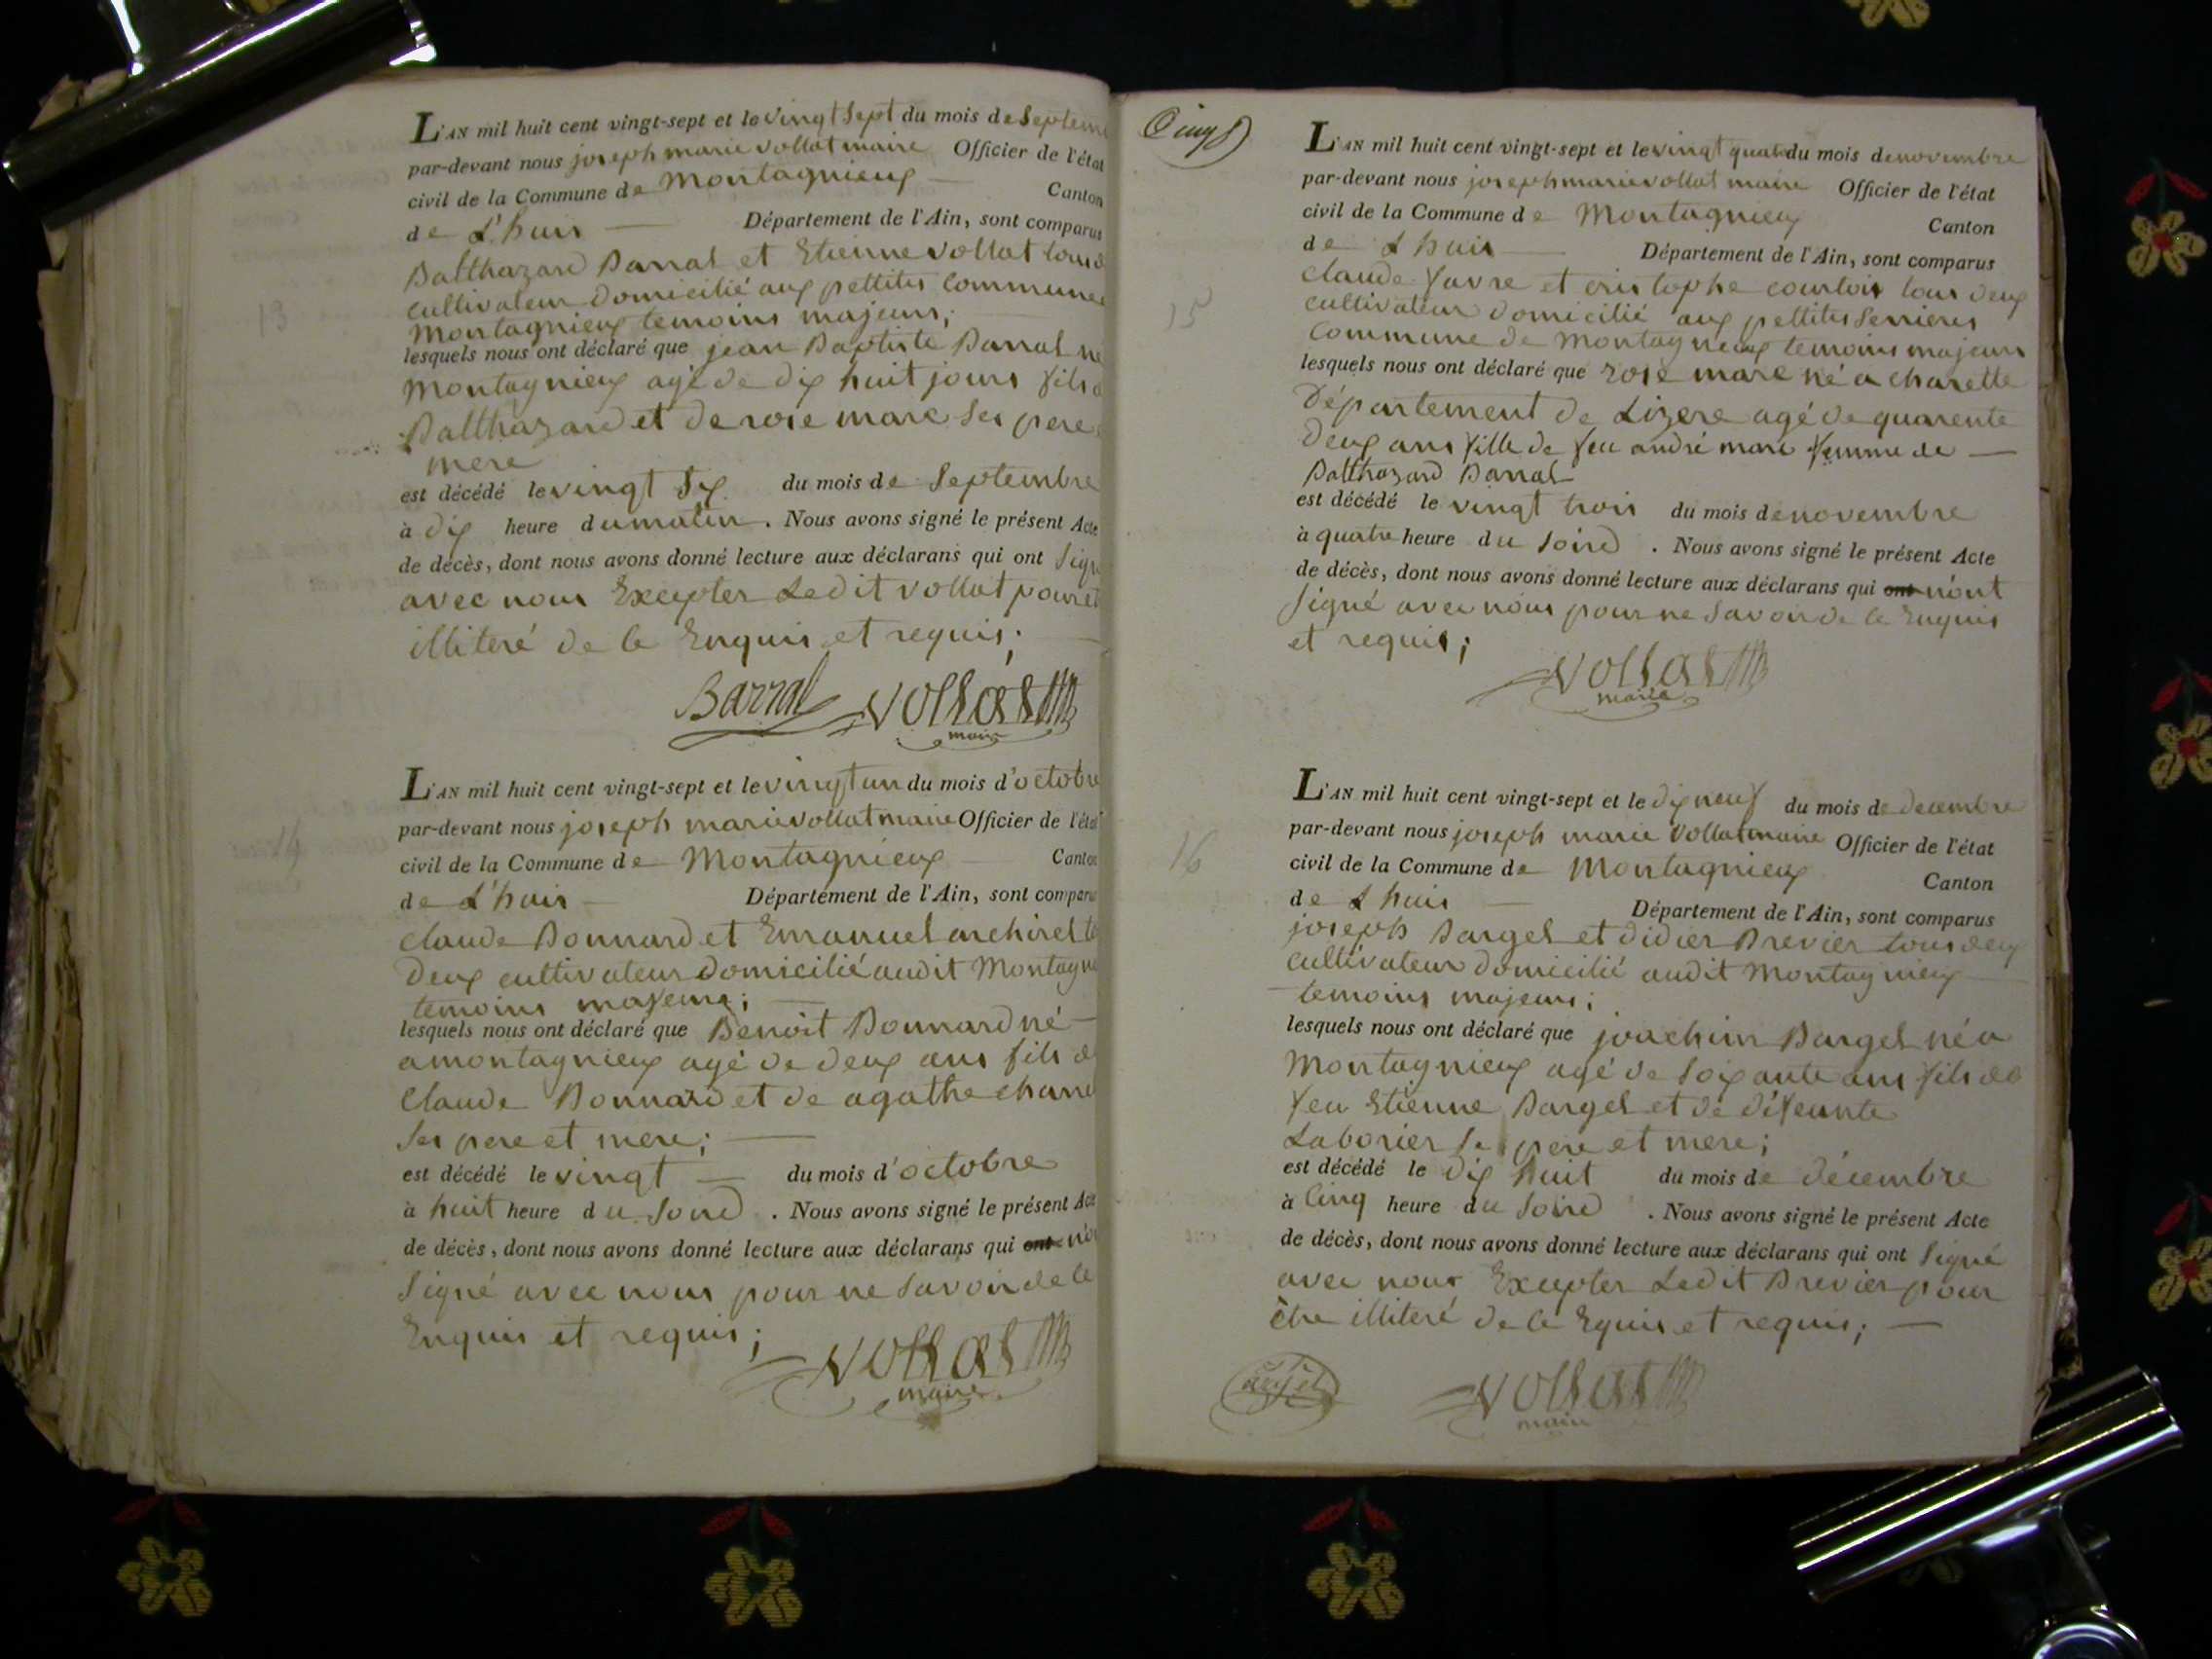 L'AN mil huit cent vingt-sept et le vingt sept du mois de septem
par-devant nous joseph marie vollat maire Officier de l'état
civil de la Commune de Montagnieux Canton
de L'huis Département de l'Ain, sont comparus
Balthazard Barral et Etienne vollat tous d
cultivateur domicilié aux pettites Commune
Montagnieux temoins majeurs;
lesquels nous ont déclaré que jean Baptiste Barral né
Montagnieux agé de dix huit jours fils d
Balthazard et de rose mare ses pere
mere
est décédé le vingt six du mois de Septembre
à dix heure du matin. Nous avons signé le présent Acte
de décès, dont nous avons donné lecture aux déclarans qui ont signé
avec nous Excepter Ledit vollat pour et
illiteré de ce Enquis et requis;
Barral Vollat
maire
14
L'AN mil huit cent vingt-sept et le vingt un du mois d'octobre
par-devant nous joseph marie vollat maire Officier de l'état
civil de la Commune de Montagnieux Canton
de L'huis Département de l'Ain, sont comparu
Claude Bonnard et Emanuel archirel to
deux cultivateur domicilié audit Montagni
temoins majeurs;
lesquels nous ont déclaré que Benoit Bonnard né
a montagnieux agé de deux ans fils de
Claude Bonnard et de agathe
ses pere et mere;
est décédé le vingt du mois d'octobre
à huit heure du Soird. Nous avons signé le présent Acte
de décès, dont nous avons donné lecture aux déclarans qui ont n'on
signé avec nous pour ne savoir de ce
Enquis et requis;
Vollat
maire
Cinq
L'AN mil huit cent vingt-sept et le vingt quatre du mois de novembre
par-devant nous joseph marie vollat maire Officier de l'état
civil de la Commune de Montagnieux Canton
de L huis Département de l'Ain, sont comparus
15
Claude favre et cristophe courtois tous deux
cultivateur domicilié aux pettites Serrieres
Commune de Montagnieux temoins majeurs
lesquels nous ont déclaré que rose mare né a charette
Département de Lizere agé de quarente
deux ans fille de feu andré mare femme de
Balthazard Barral
est décédé le vingt trois du mois de novembre
à quatre heure du soird. Nous avons signé le présent Acte
de décès, dont nous avons donné lecture aux déclarans qui ont n'ont
signé avec nous pour ne savoir de ce Enquis
et requis;
Vollat
maire
L'AN mil huit cent vingt-sept et le dix neuf du mois de decembre
par-devant nous joseph marie vollat maire Officier de l'état
16
civil de la Commune de Montagnieux Canton
de L huis Département de l'Ain, sont comparus
joseph Bargel et didier Brevier tous deux
cultivateur domicilié audit Montagnieux
temoins majeurs;
lesquels nous ont déclaré que joachim Bargel né a
Montagnieux agé de soixante ans fils de
feu Etienne Bargel et de défeunte
Laborier se pere et mere;
est décédé le dix huit du mois de décembre
à Cinq heure du Soird. Nous avons signé le présent Acte
de décès, dont nous avons donné lecture aux déclarans qui ont signé
avec nous Excepter Ledit Brevier pour
être illiteré de ce Equis et requis;
Vollat
maire